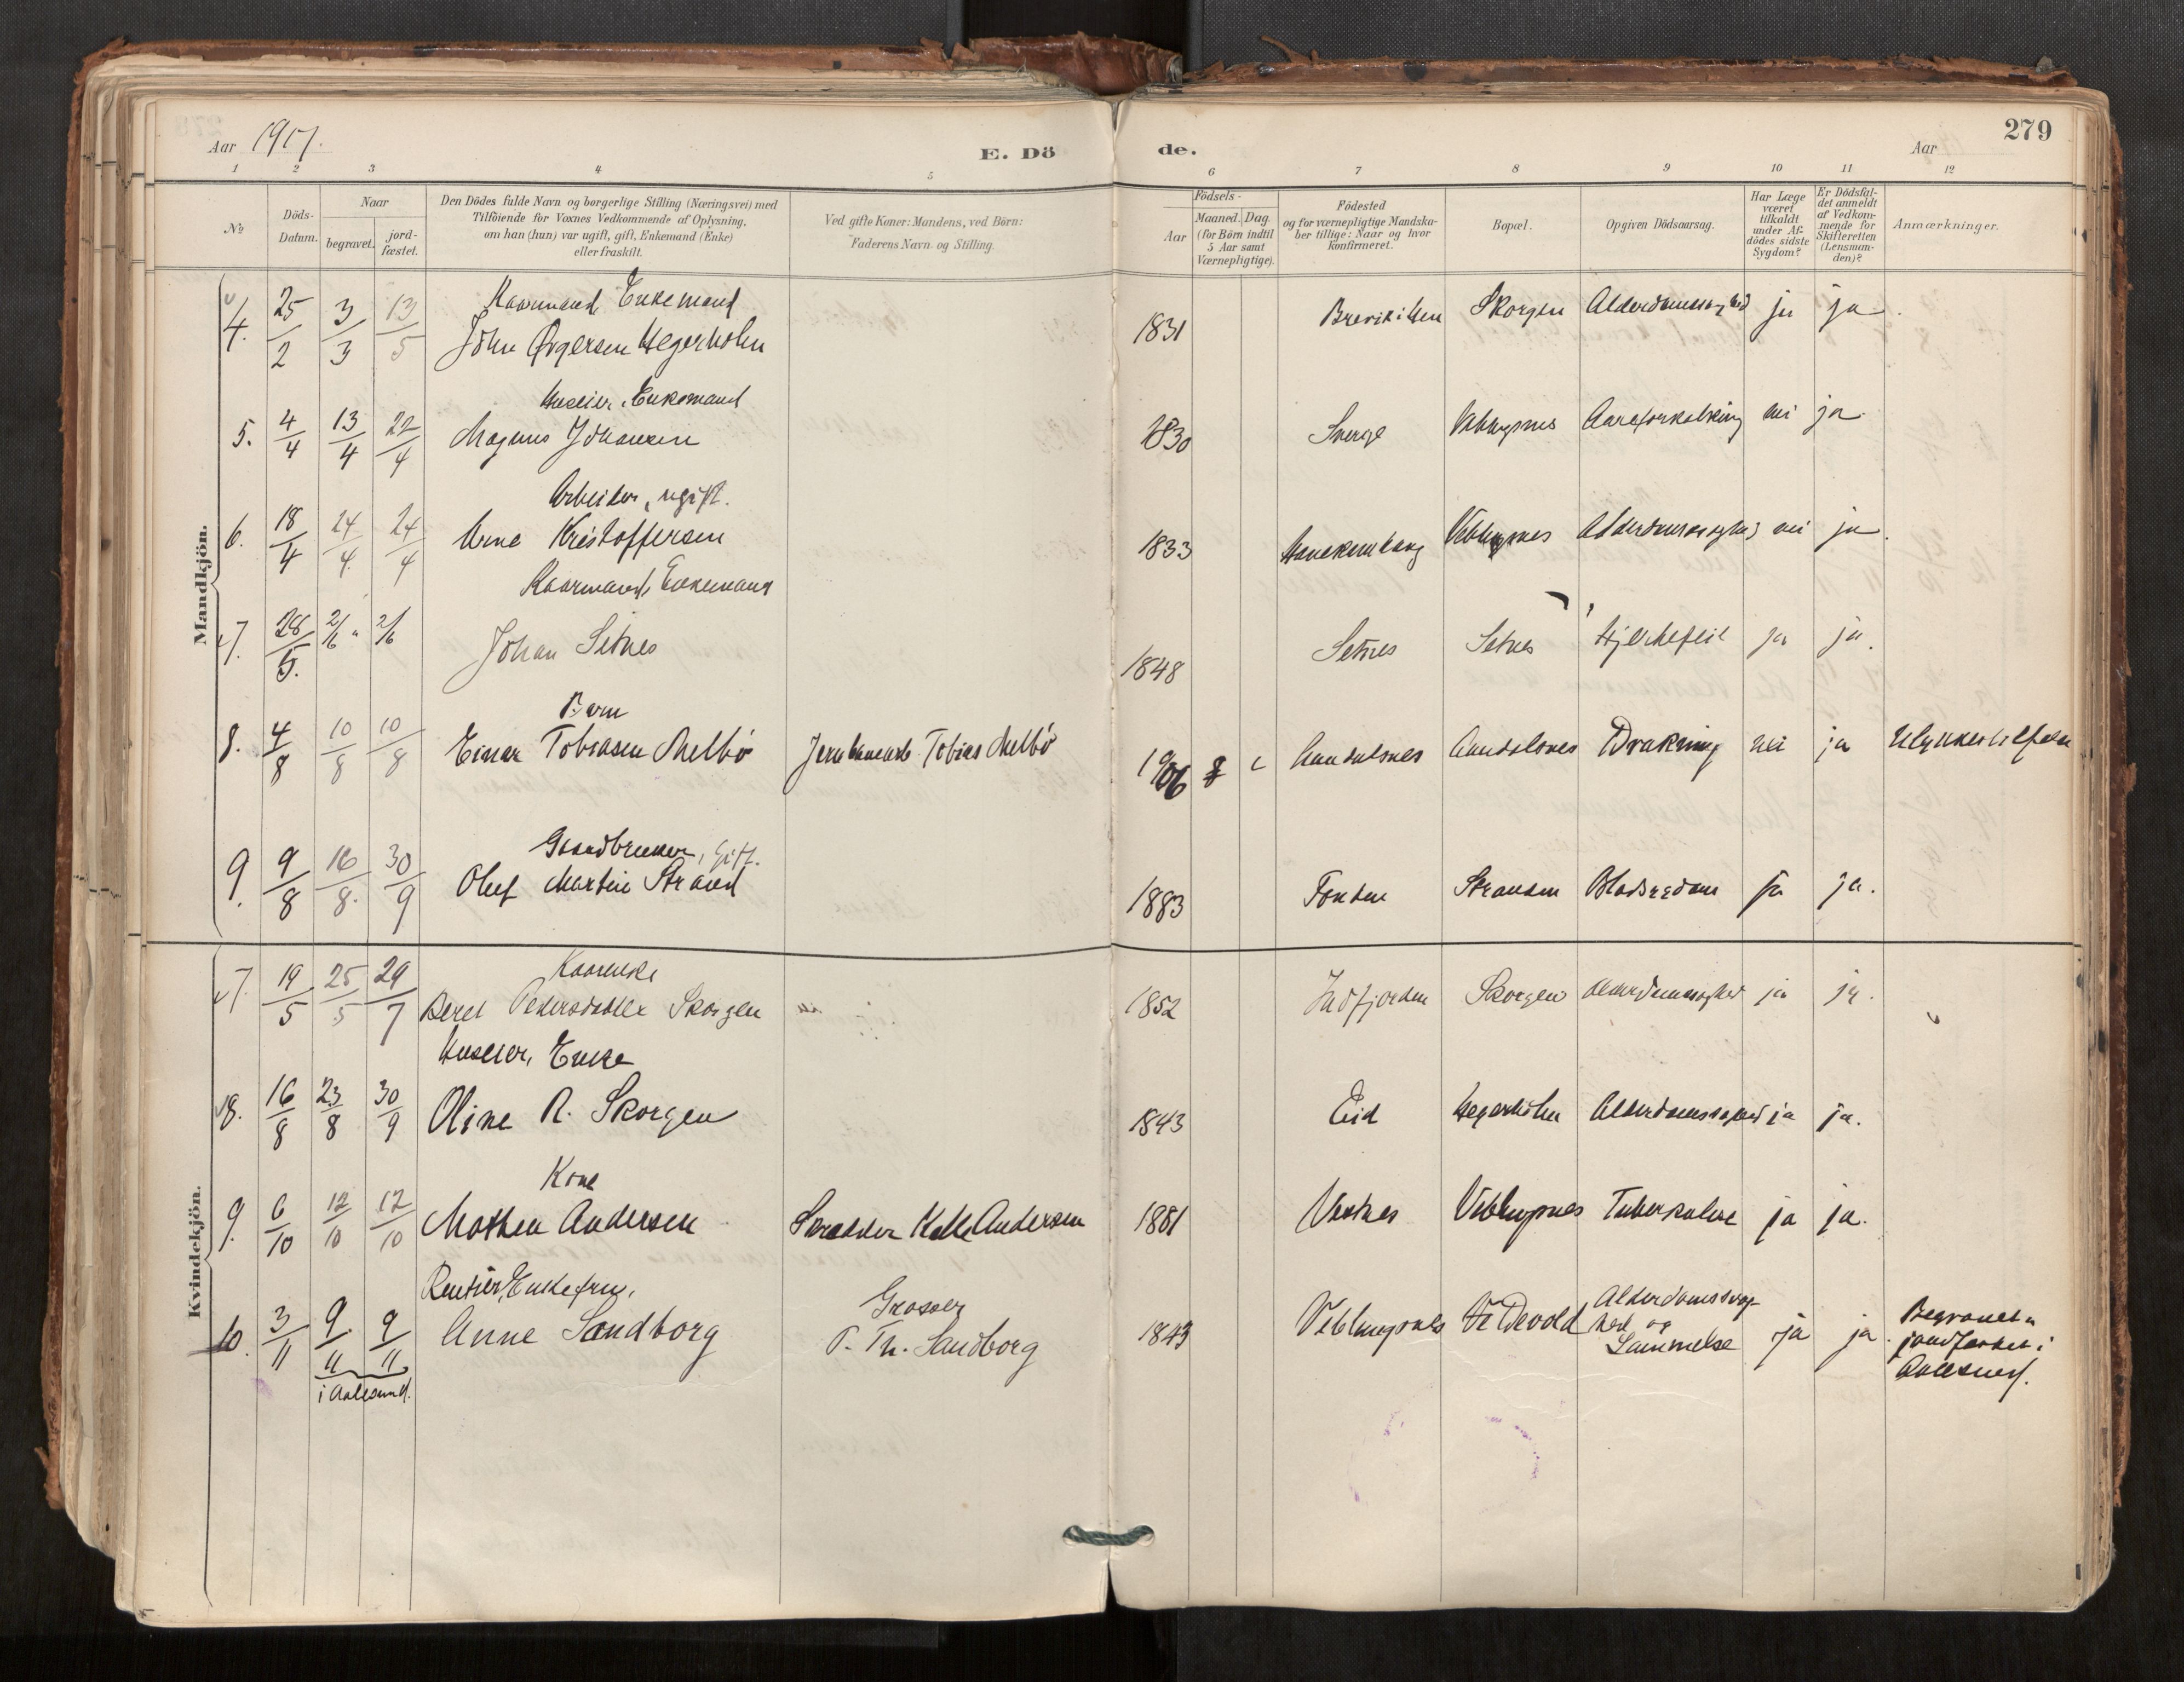 279
Aar 1917.
E. Dö
de.
Aar
1 2 3 4 5 6 7 8 9 10 11 12
No
Döds-
Datum.
Naar
begravet.
jord-
fæstet.
Den Dödes fulde Navn og borgerlige Stilling (Næringsvei) med
Tilföiende for Voxnes Vedkommende af Oplysning,
om han (hun) var ugift, gift, Enkemand (Enke)
eller fraskilt.
Ved gifte Koner: Mandens, ved Börn:
Faderens Navn og Stilling.
Födsels-
Aar
Maaned. Dag.
(for Börn indtil
5 Aar samt
Værnepligtige).
Födested
og for værnepligtige Mandska-
ber tillige: Naar og hvor
konfirmeret.
Bopæl.
Opgiven Dödsaarsag.
Har Læge
været
tilkaldt
under Af-
dödes sidste
Sygdom?
Er Dödsfal-
det anmeldt
af Vedkom-
mende for
Skifteretten
(Lensman-
den)?
Anmærkninger.
Mandkjön.
Kaarmand, Enkemand
4. 25/2 3/3 13/5 John Hegerholm 1831 Skorgen ja ja.
Huseier, Enkemand
5. 4/4 13/4 22/4 Magnus Johansen 1830 Sverge Veblugsnes Aareforkalkning nei ja.
Arbeider, ugift.
6. 18/4 24/4 24/4 Arne Kristoffersen 1833 Veblugsnes Alderdomssvaghed nei ja.
Kaarmand, Enkemand
7. 28/5. 2/6 2/6 Johan Setnes 1848 Setnes Setnes Hjertefeil ja ja.
Barn
8. 4/8 10/8 10/8 Einar Tobiasen Melbö Tobias Melbö 1906 8 Aandalsnes Aandalsnes Drukning nei ja Ulykkestilfelle
Gaardbruker, Gift.
9. 9/8 16/8. 30/9 Oluf Martin Strand 1883 Stranden ja ja.
Kvindekjön.
Kaarenke
7. 19/5 25/5 29/7 Beret Pedersdatter Skorgen 1852 Indfjorden Skorgen Alderdomssvaghed ja ja.
Huseier, Enke
8. 16/8 23/8 30/9 Oline R. Skorgen 1843 Eid Hegerholm Alderdomssvaghed ja ja.
Kone
9. 6/10 12/10 12/10 Mathea Andersen Skredder Andersen 1881 Vestnes Veblugsnes Tuberkulose ja ja.
Rentier, Enkefru.
10. 3/11 9/11 9/11 Anne Sandborg
i Aalesund.
Grosser
P. Th. Sandborg
1843 Veblugsnes Devold
Alderdomssvag-
hed og
Lammelse
ja ja.
Begravet og
jordfæstet i
Aalesund.